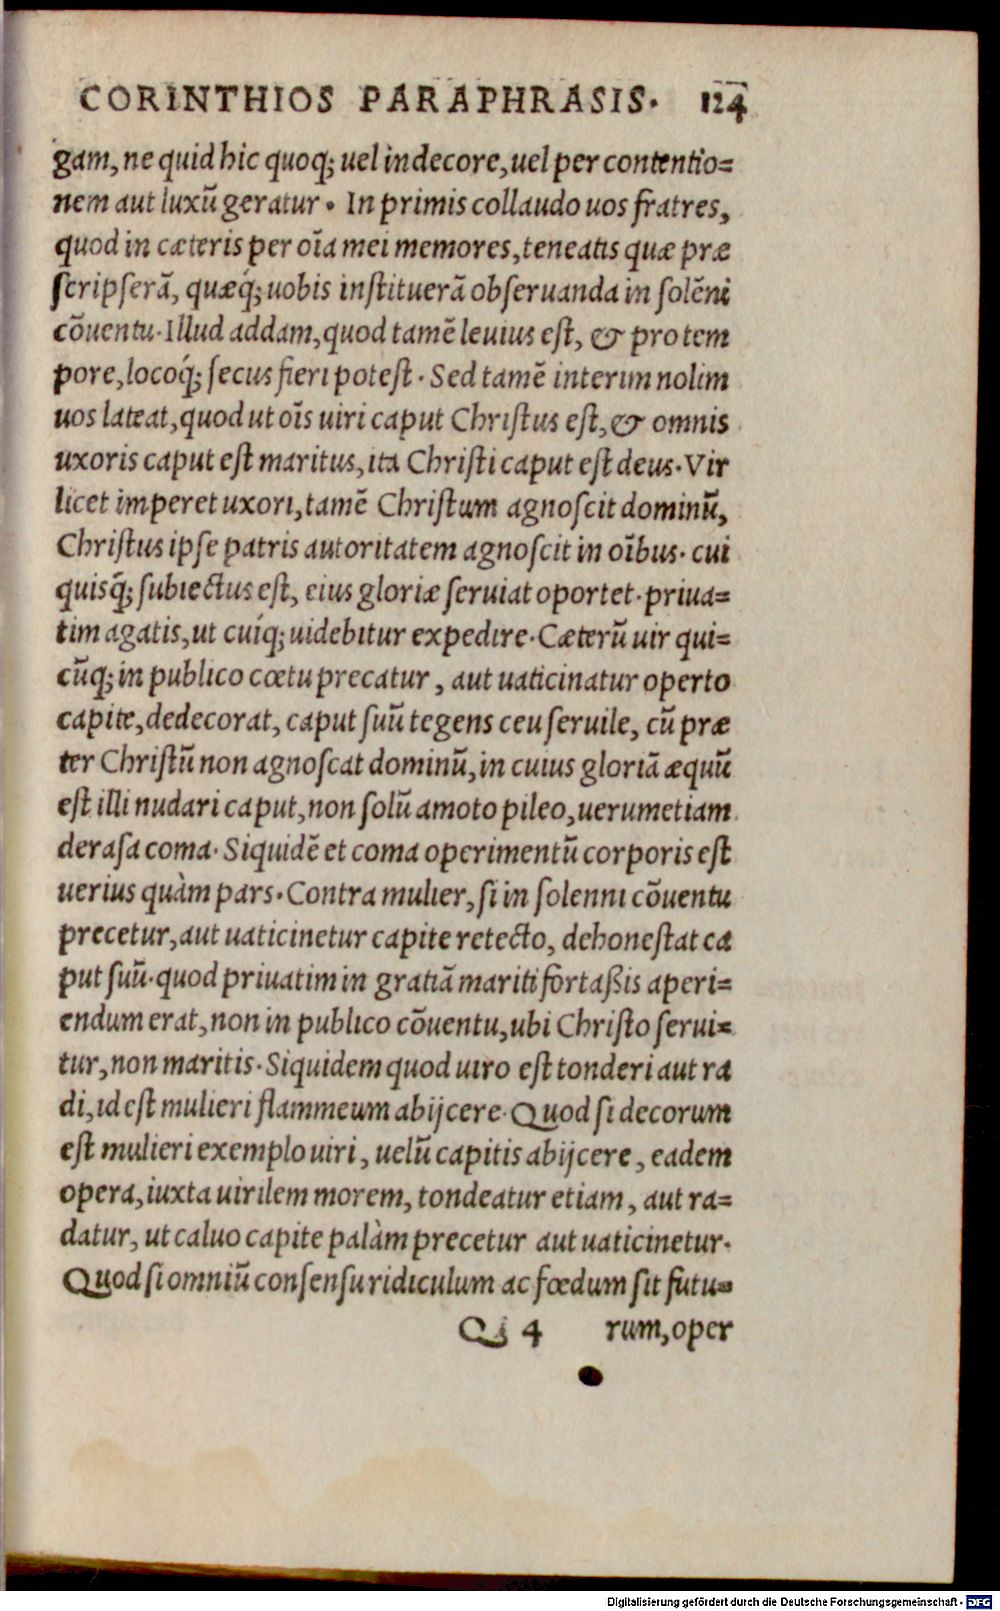 CORINTHIOS PARAPHRASIS. 124
gam, ne quid hic quoq; uel indecore, uel per contentio=
nem aut luxũ geratur. In primis collaudo uos fratres,
quod in cæteris per oĩa mei memores, teneatis quæ præ
scripserã, quæq́; uobis instituerã obseruanda in solẽni
cõuentu. Illud addam, quod tamẽ leuius est, & pro tem
pore, locoq́; secus fieri potest. Sed tamẽ interim nolim
uos lateat, quod ut oĩs uiri caput Christus est, & omnis
uxoris caput est maritus, ita Christi caput est deus. Vir
licet imperet uxori, tamẽ Christum agnoscit dominũ,
Christus ipse patris autoritatem agnoscit in oĩbus. cui
quisq̃; subiectus est, eius gloriæ seruiat oportet. priua=
tim agatis, ut cuiq́; uidebitur expedire. Cæterũ uir qui=
cũq; in publico cœtu precatur, aut uaticinatur operto
capite, dedecorat, caput suũ tegens ceu seruile, cũ præ
ter Christũ non agnoscat dominũ, in cuius gloriã æquũ
est illi nudari caput, non solũ amoto pileo, uerumetiam
derasa coma. Siquidẽ et coma operimentũ corporis est
uerius quàm pars. Contra mulier, si in solenni cõuentu
precetur, aut uaticinetur capite retecto, dehonestat ca
put suũ. quod priuatim in gratiã mariti fortaßis aperi=
endum erat, non in publico cõuentu, ubi Christo serui=
tur, non maritis. Siquidem quod uiro est tonderi aut ra
di, id est mulieri flammeum abijcere. Quod si decorum
est mulieri exemplo uiri, uelũ capitis abijcere, eadem
opera, iuxta uirilem morem, tondeatur etiam, aut ra=
datur, ut caluo capite palàm precetur aut uaticinetur.
Quod si omniũ consensu ridiculum ac fœdum sit futu=
Q 4 rum, oper
Digitalisierung gefördert durch die Deutsche Forschungsgemeinschaft - DFG